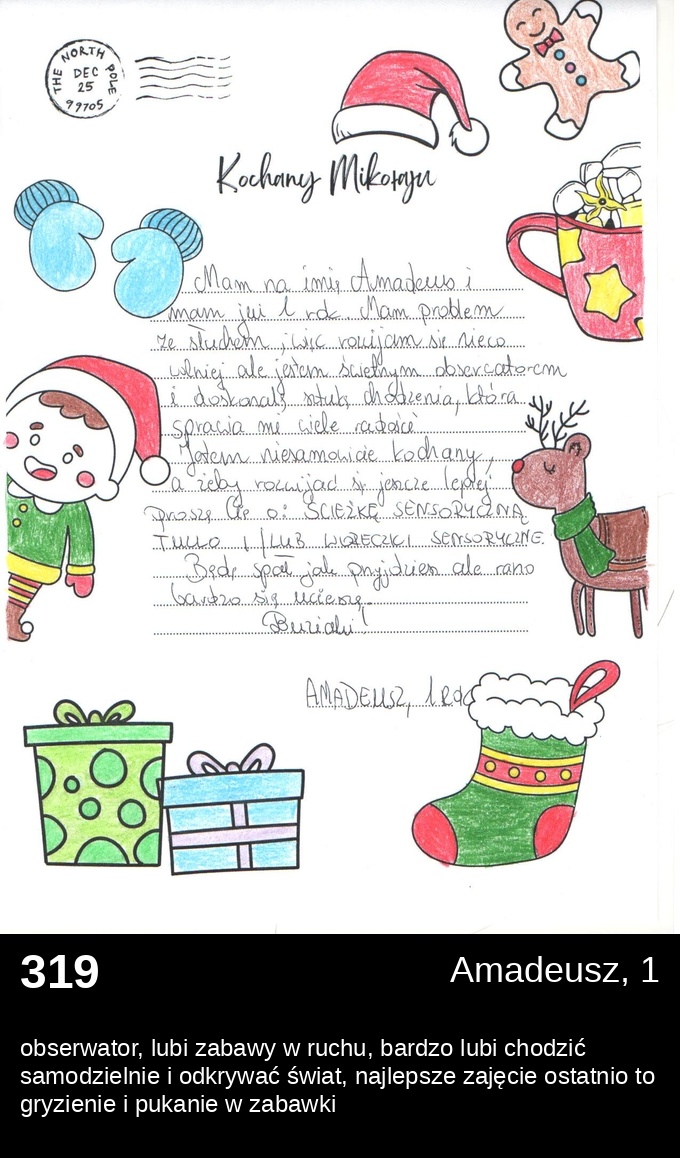 THE NORTH POLE
DEC
25
99705
Kochany Mikołaju
Mam na imię Amadeus i
mam już 1 rok. Mam problem
ze słuchem, więc rozwijam się nieco
wolniej ale jestem świetnym obserwatorem
i doskonalę sztukę chodzenia, która
sprawia mi wiele radości
Jestem niesamowicie kochany,
a żeby rozwijać się jeszcze lepiej
proszę Cię o: ŚCIEŻKĘ SENSORYCZNĄ
TULLO I/LUB WORECZKI SENSORYCZNE.
Będę spał jak przyjdziesz ale rano
bardzo się ucieszę.
Buziaki!
AMADEUSZ, 1 rok
319
Amadeusz, 1
obserwator, lubi zabawy w ruchu, bardzo lubi chodzić
samodzielnie i odkrywać świat, najlepsze zajęcie ostatnio to
gryzienie i pukanie w zabawki